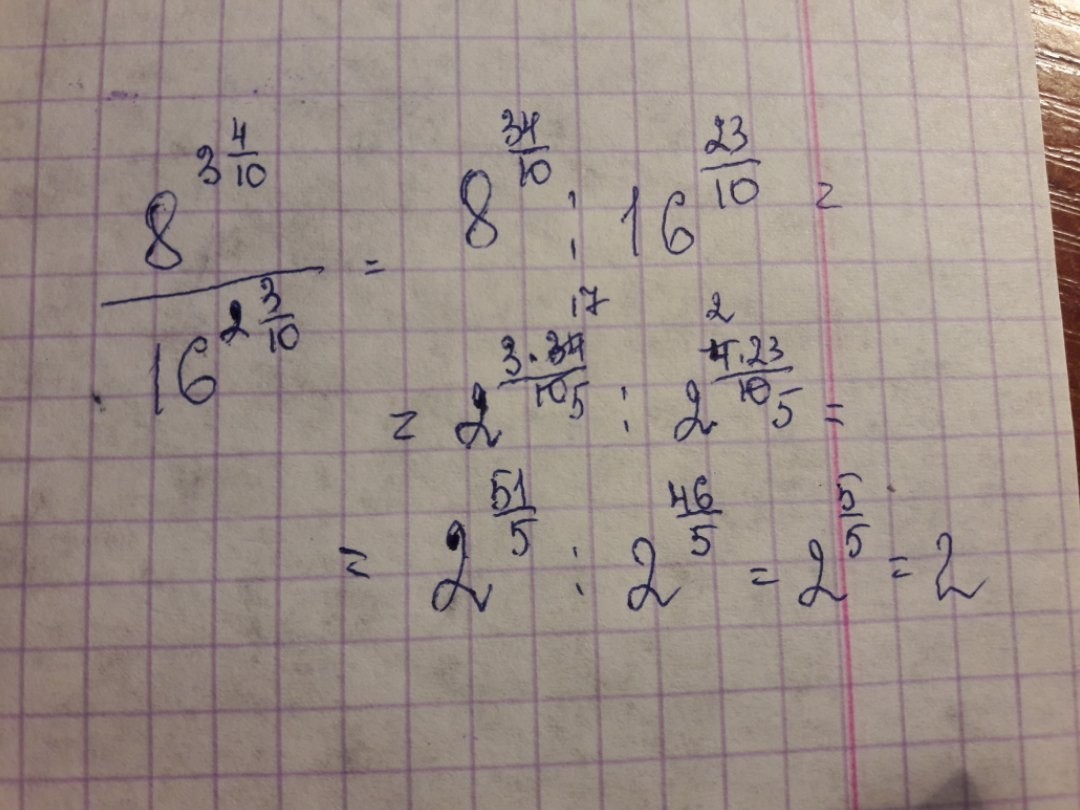 8^{3 4/10} / 16^{2 3/10} = 8^{34/10} : 16^{23/10} =
= 2^{3·34/10} 17 5 : 2^{4·23/10} 2 5 =
= 2^{51/5} : 2^{46/5} = 2^{5/5} = 2